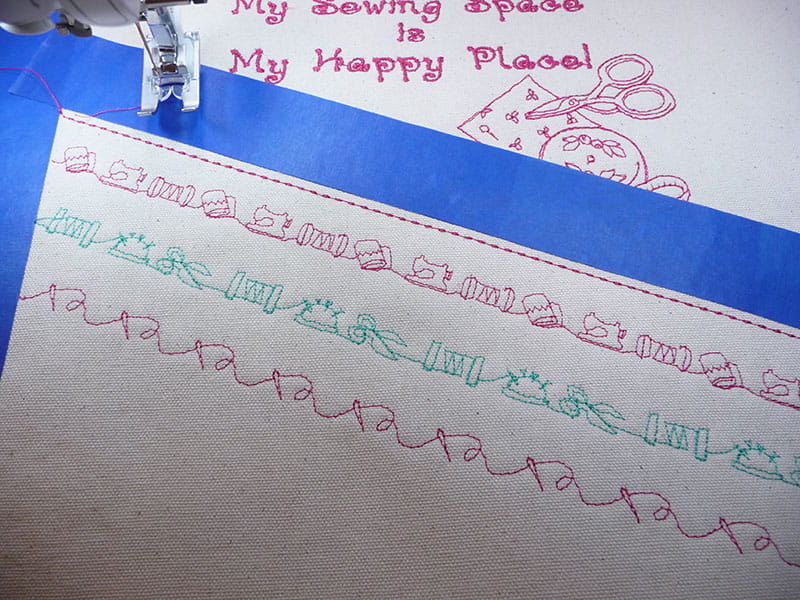 My Sewing Space
is
My Happy Place!